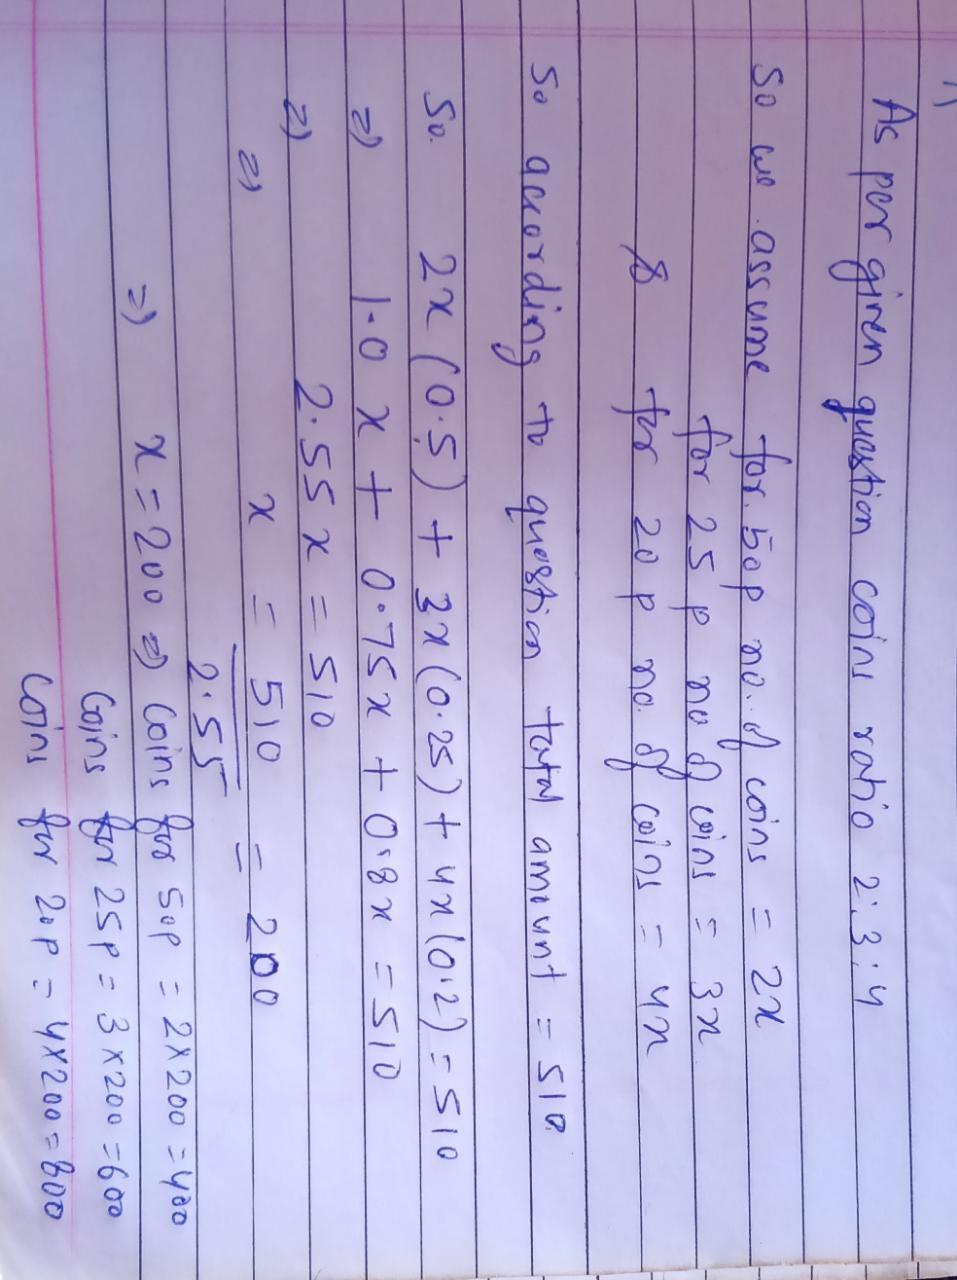 1)
As per given question coins ratio 2:3:4
So we assume for 50p no. of coins = 2x
for 25 p no of coins = 3x
& for 20 p no. of coins = 4x
So according to question total amount = 510
So. 2x (0.5) + 3x (0.25) + 4x (0.2) = 510
=) 1.0 x + 0.75x + 0.8x = 510
=) 2.55 x = 510
=) x = 510 = 200
2.55
=) x = 200 =) Coins for 50p = 2x200 = 400
Coins for 25p = 3x200 = 600
Coins for 20p = 4x200 = 800